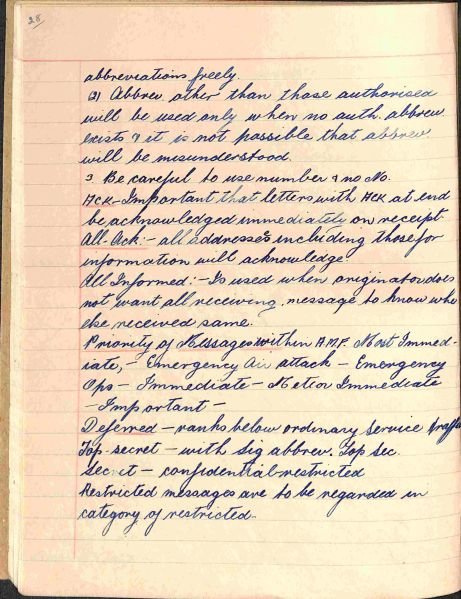 28
abbreviations freely.
(2) Abbrev. other than those authorised
will be used only when no auth. abbrev.
exists & it is not possible that abbrev.
will be misunderstood.
3. Be careful to use number & no No.
Ack - Important that letters with Ack at end
be acknowledged immediately on receipt
All-Ack:- all addresses including those for
information will acknowledge
All Informed:- Is used when originator does
not want all receiving message to know who
else received same.
Priority of Messages within A.M.F. Most Immed-
iate, - Emergency Air attack - Emergency
Ops - Immediate - Meteor Immediate
- Important -
Deferred - ranks below ordinary service traffic
Top-secret - with sig abbrev. Top Sec
Secret - confidential-restricted
Restricted messages are to be regarded in
category of restricted.